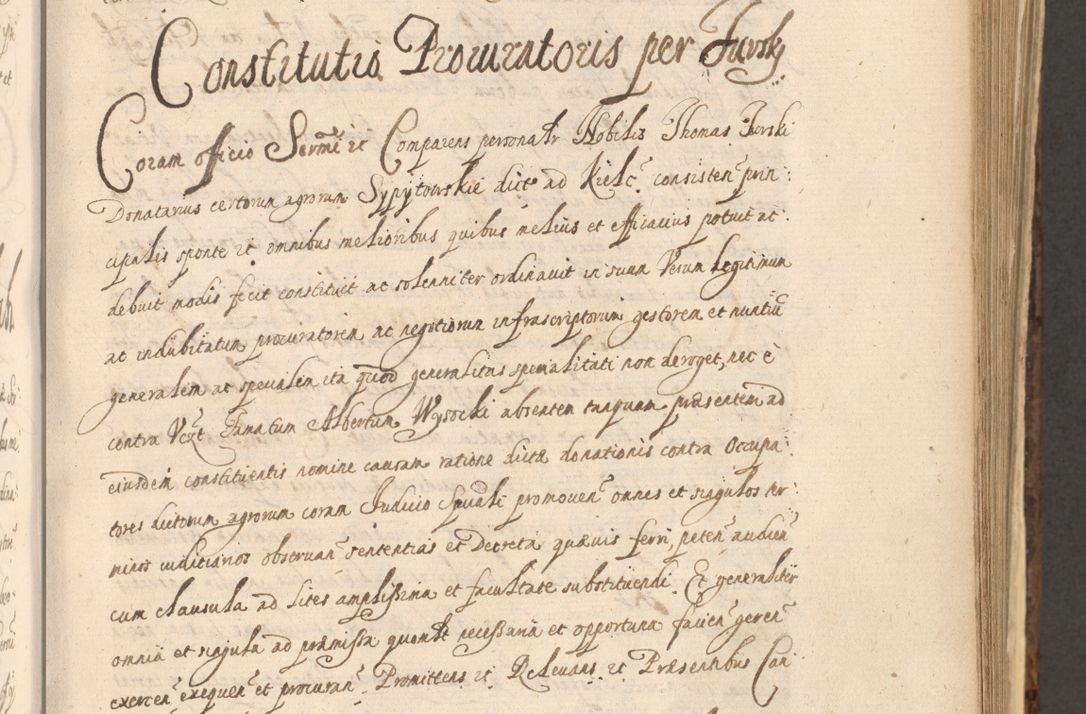 Constitutio Procuratoris per Jurski
Coram officio Sermē et Comparens personalr Nobilis Thomas Jurski
Donatarius certorum agrorum Sypytowskie dict ad Kielc consisten prin:
cipalis sponte et omnibus melioribus quibus melius et efficacius potuit ac
debuit modis fecit constituit ac solenniter ordinavit in suum Verum Legitimum
ac indubitatum procuratorem ac negotiorum infrascriptorum gestorem et nuntiū
generalem ac specialem ita quod generalitas specialitati non deroget, nec è
contra Famatum Albertum Wysocki absentem tanquam præsentem ad
eiusdem constituentis nomine causam ratione dictæ donationis contra Occupa:
tores dictorum agrorum coram Judicio Spūali promoven omnes et singulos ter:
minos juditiarios observan sententias et Decreta quævis ferri, peten audien
cum clausula ad lites amplissima et facultate substituendi. Et generaliter
omnia et singula ad præmissa necessaria et opportuna facien geren
exercen exequen et procuran. Promittens et Relevans et Præsentibus